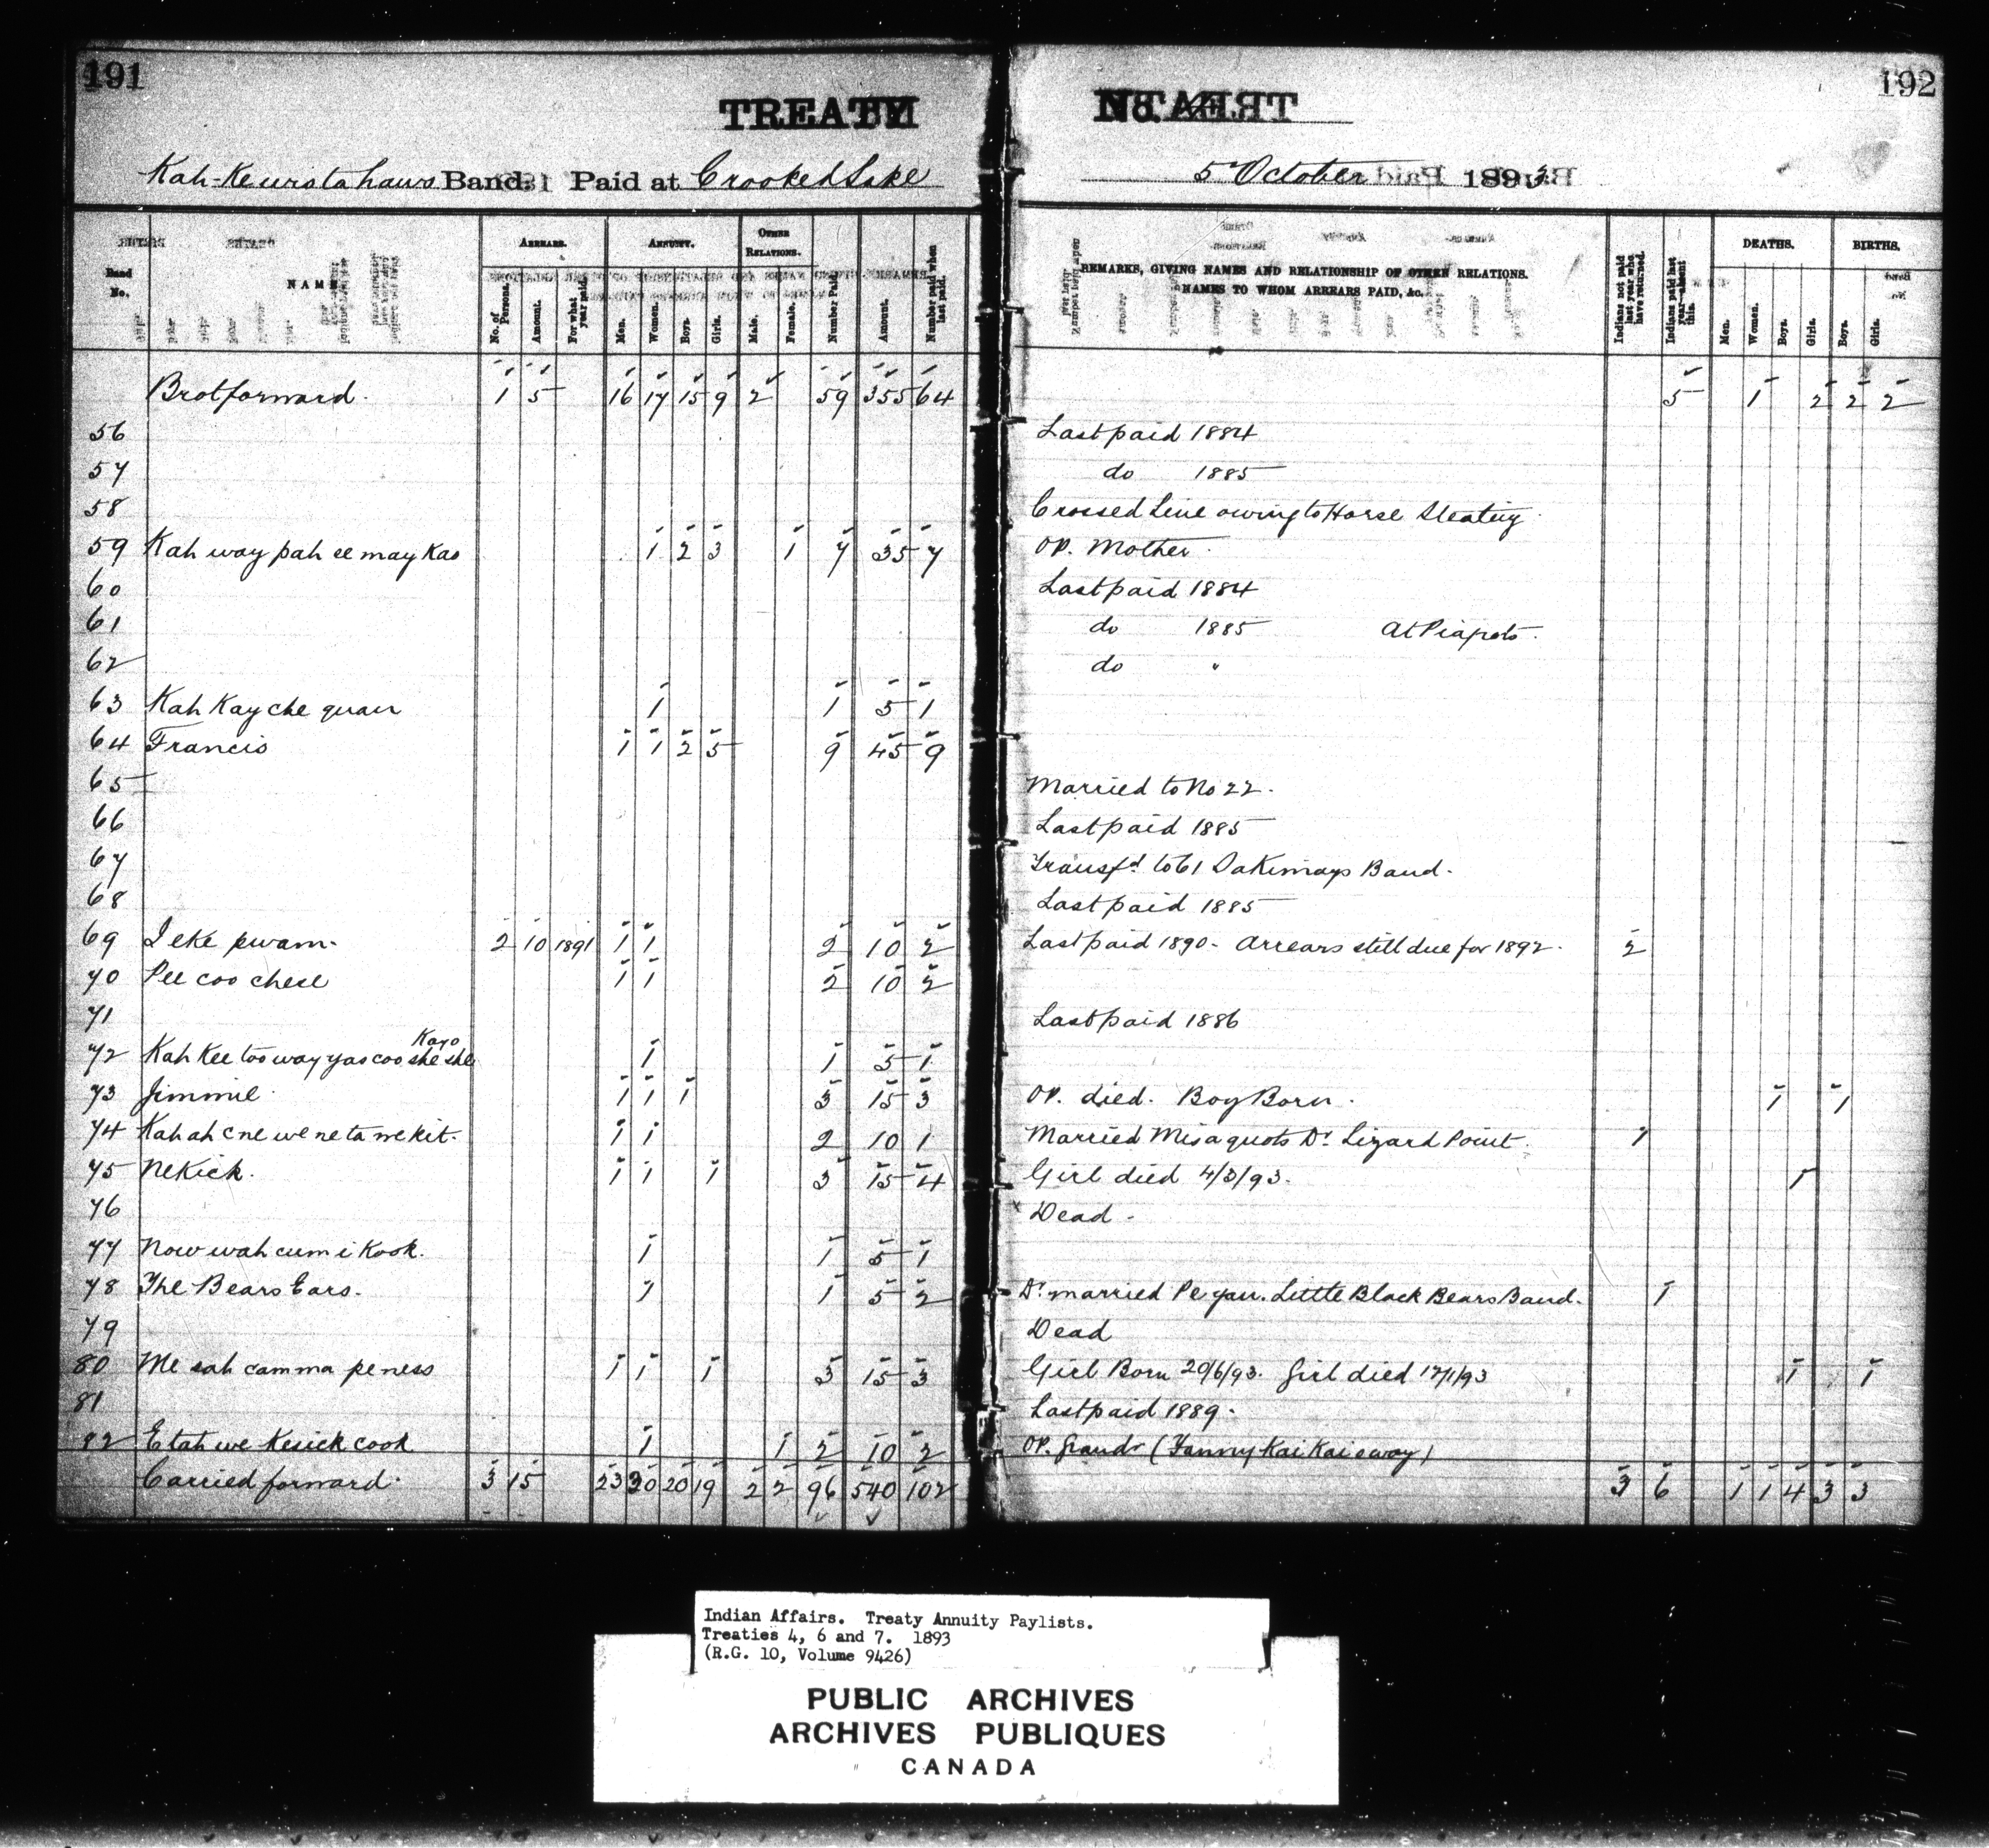 191
192
TREATY
No. 4
Kah-Kewistahaws Band. Paid at Crooked Lake
5 October 1893
Band No. NAME ARREARS. No. of Persons. Amount. For what year paid. ANNUITY. Men. Women. Boys. Girls. OTHER RELATIONS. Male. Female. Number Paid. Amount. Number paid when last paid. REMARKS, GIVING NAMES AND RELATIONSHIP OF OTHER RELATIONS. NAMES TO WHOM ARREARS PAID, &c. Indians not paid last year who have returned. Indians paid last year absent this. DEATHS. Men. Women. Boys. Girls. BIRTHS. Boys. Girls.
Brot forward. 1 5 16 17 15 9 2 59 355 64 5 1 2 2 2
56 Last paid 1884
57 do 1885
58 Crossed Line owing to Horse Stealing
59 Kah way pah ee may kao 1 2 3 1 7 35 7 OP. Mother.
60 Last paid 1884
61 do 1885 At Piapots.
62 do "
63 Kah Kay che quan 1 1 5 1
64 Francis 1 1 2 5 9 45 9
65 Married to No 22.
66 Last paid 1885
67 Transfd. to 61 Sakimays Band.
68 Last paid 1885
69 I eke pwam. 2 10 1891 1 1 2 10 2 Last paid 1890. Arrears still due for 1892. 2
70 Pee coo chese 1 1 2 10 2
71 Last paid 1886
72 Kah Kee too way yas coo she she Kayo 1 1 5 1
73 Jimmie. 1 1 1 3 15 3 OP. died. Boy Born. 1 1
74 Kah ah cne we ne ta we kit. 1 1 2 10 1 Married Misaquots Dr. Lizard Point. 1
75 Nekick. 1 1 1 3 15 4 Girl died 4/3/93. 1
76 Dead.
77 Now wah cum i Kook. 1 1 5 1
78 The Bears Ears. 1 1 5 2 Dr. married Pe gan. Little Black Bears Band. 1
79 Dead
80 Me sah camma peness 1 1 1 3 15 3 Girl Born 20/6/93. Girl died 17/1/93 1 1
81 Last paid 1889.
82 E tah we Kesick cook 1 1 2 10 2 OP. Grandr (Fanny Kai Kai e way)
Carried forward. 3 15 23 30 20 19 2 2 96 540 102 3 6 1 1 4 3 3
Indian Affairs. Treaty Annuity Paylists.
Treaties 4, 6 and 7. 1893
(R.G. 10, Volume 9426)
PUBLIC ARCHIVES
ARCHIVES PUBLIQUES
CANADA